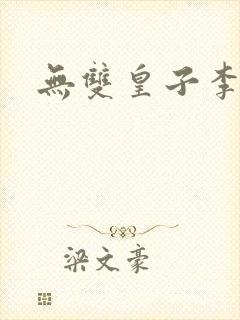 無雙皇子李
梁文豪